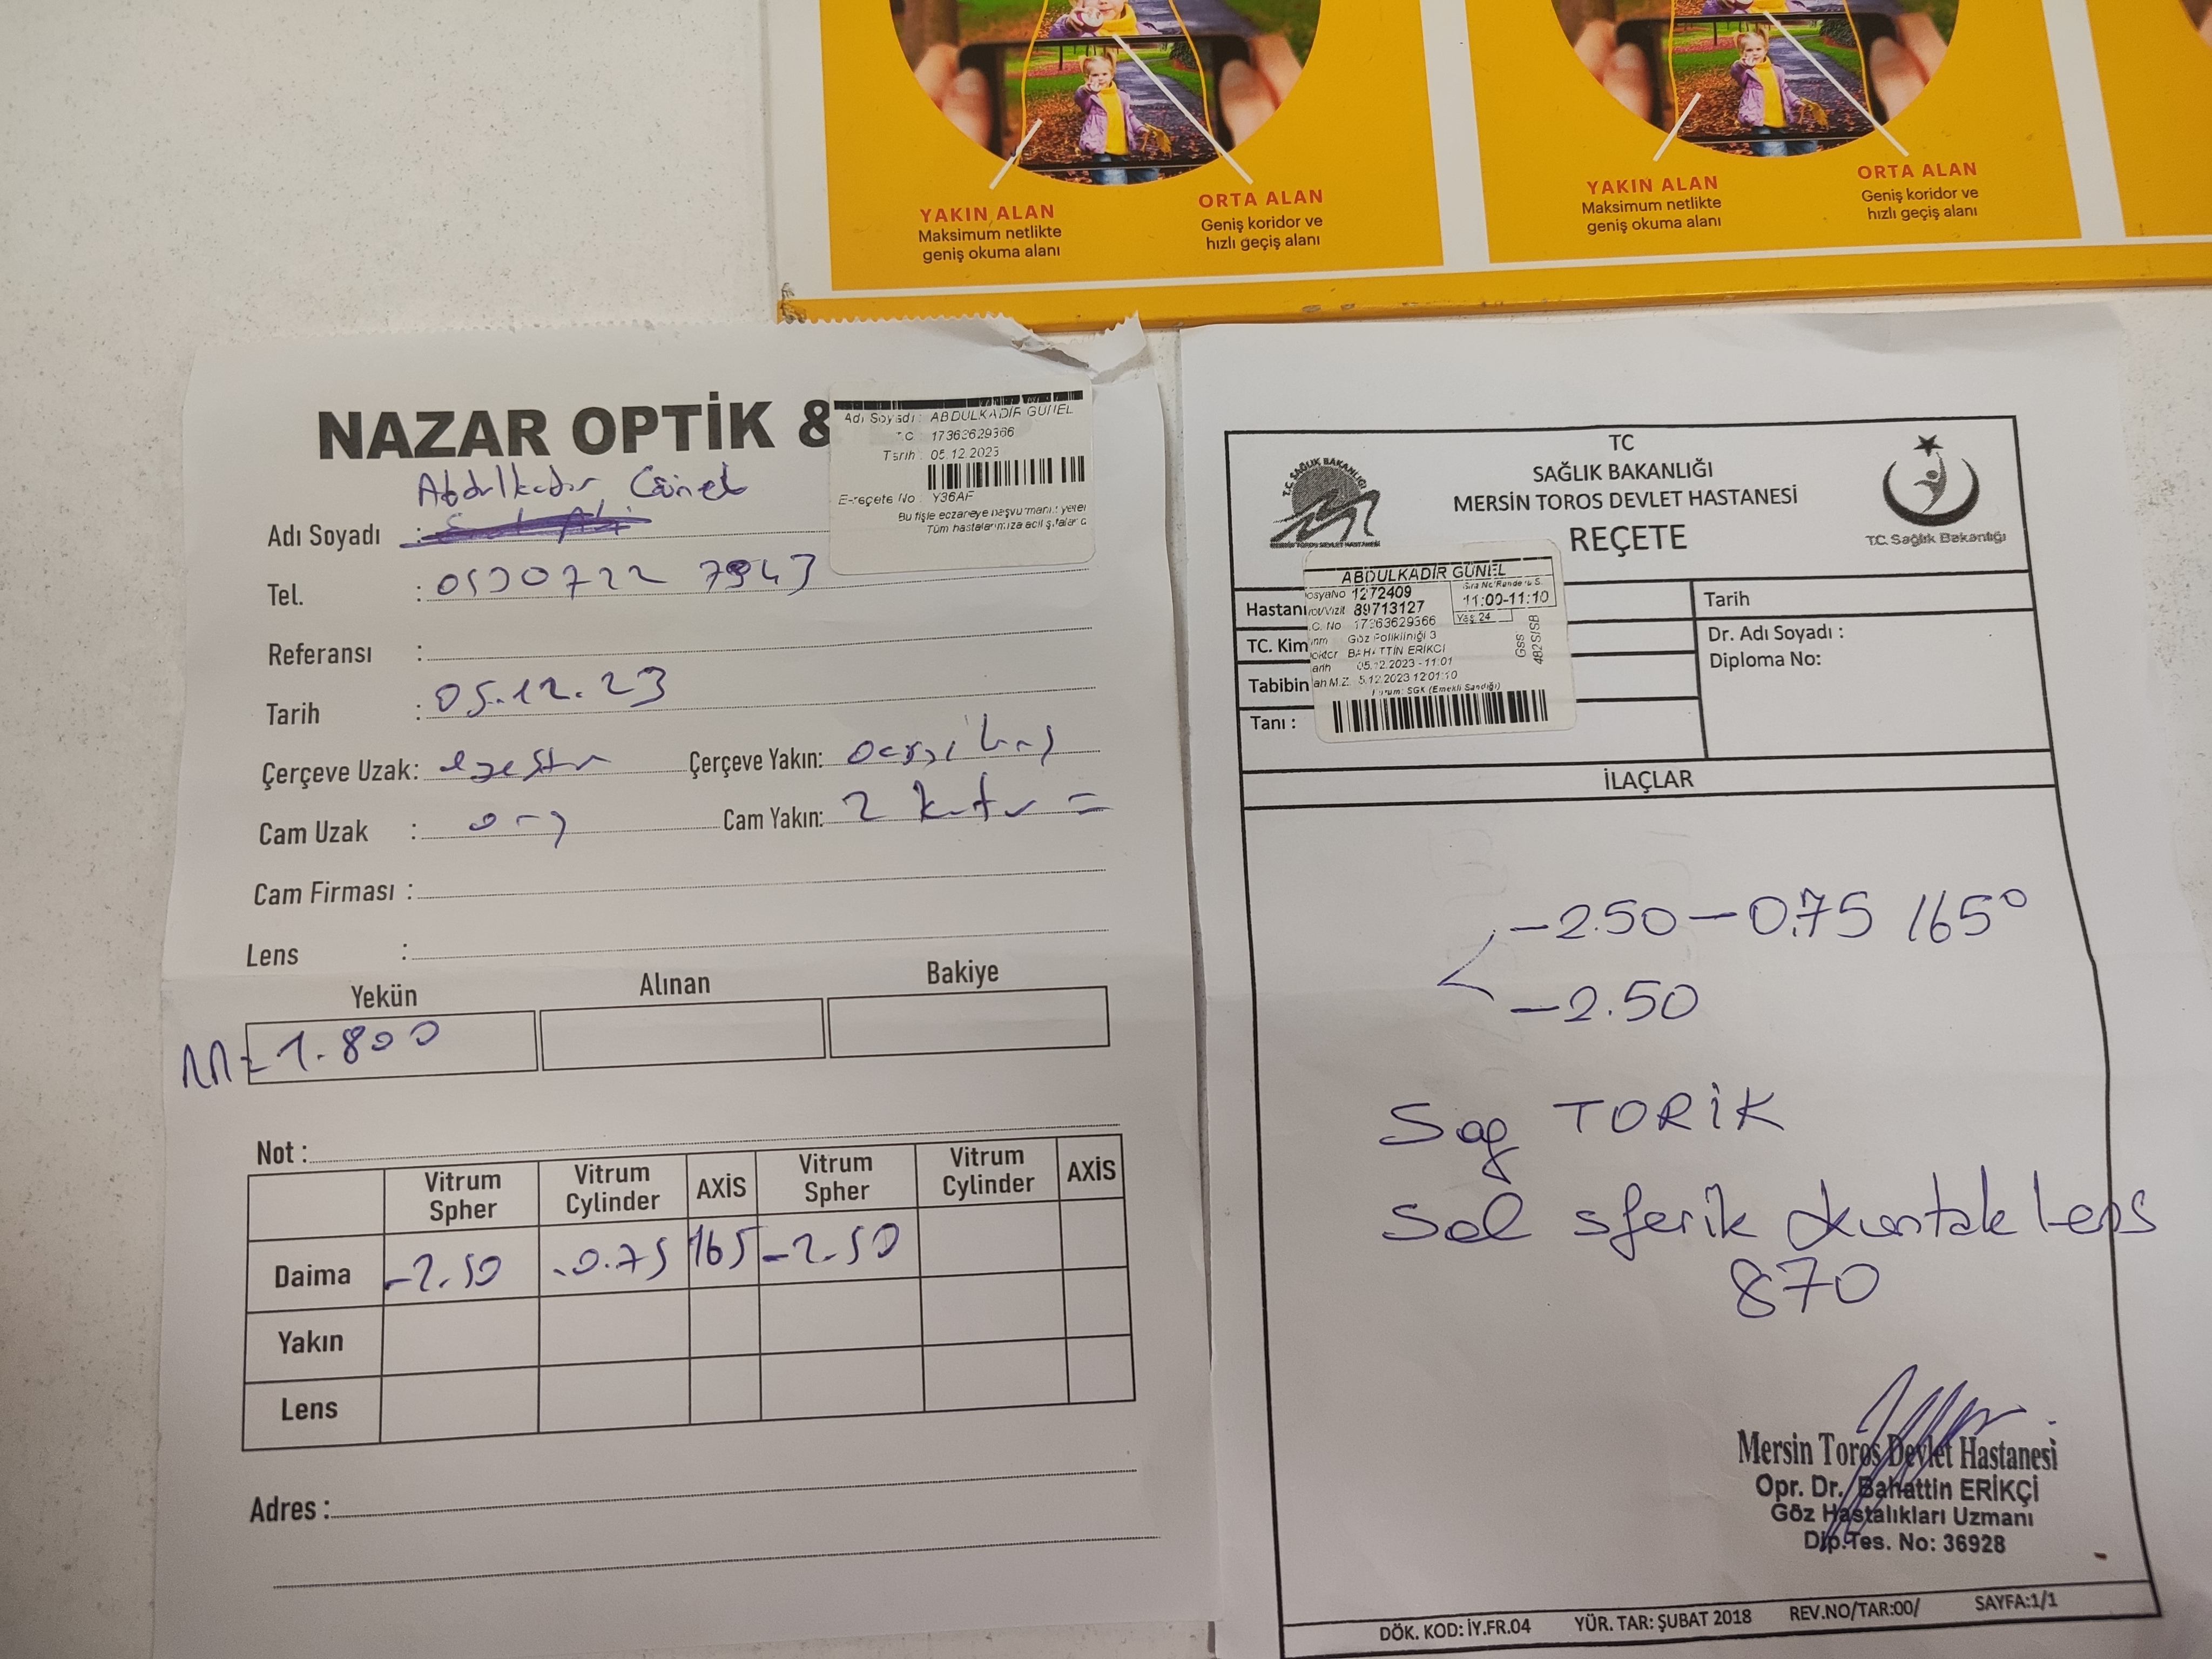 YAKIN ALAN
Maksimum netlikte
geniş okuma alanı
ORTA ALAN
Geniş koridor ve
hızlı geçiş alanı
YAKIN ALAN
Maksimum netlikte
geniş okuma alanı
ORTA ALAN
Geniş koridor ve
hızlı geçiş alanı
NAZAR OPTİK &
Adı Soyadı : ABDULKADİR GÜNEL
TC : 17363629366
Tarih : 05.12.2023
E-reçete No : Y36AF
Bu fişle eczaneye başvurmanız yeter
Tüm hastalarımıza acil şifalar d
Abdulkadir Günel
Adı Soyadı :
Tel. : 0530722 7943
Referansı :
Tarih : 05.12.23
Çerçeve Uzak: Çerçeve Yakın:
Cam Uzak : Cam Yakın: 2 kutu =
Cam Firması :
Lens :
Yekün Alınan Bakiye
1.800
Not :
Vitrum Spher Vitrum Cylinder AXİS Vitrum Spher Vitrum Cylinder AXİS
Daima -2.50 -0.75 165 -2.50
Yakın
Lens
Adres :
TC
SAĞLIK BAKANLIĞI
MERSİN TOROS DEVLET HASTANESİ
REÇETE
T.C. SAĞLIK BAKANLIĞI
MERSİN TOROS DEVLET HASTANESİ
T.C. Sağlık Bakanlığı
Hastanı
TC. Kim
Tabibin
Tanı :
ABDULKADİR GÜNEL
osyaNo 1272409
rot/Vizit 89713127
11:00-11:10
.C. No 17363629366
Yaş 24
Göz Polikliniği 3
oktor BAHATTİN ERİKCİ
arih 05.12.2023 - 11:01
ah M.Z. 5.12.2023 12:01:10
Kurum: SGK (Emekli Sandığı)
Gss
482SISB
Tarih
Dr. Adı Soyadı :
Diploma No:
İLAÇLAR
-2.50 -0.75 165°
-2.50
Sağ TORİK
Sol sferik kontak lens
870
Mersin Toros Devlet Hastanesi
Opr. Dr. Bahattin ERİKÇİ
Göz Hastalıkları Uzmanı
Dip.Tes. No: 36928
DÖK. KOD: İY.FR.04 YÜR. TAR: ŞUBAT 2018 REV.NO/TAR:00/ SAYFA:1/1